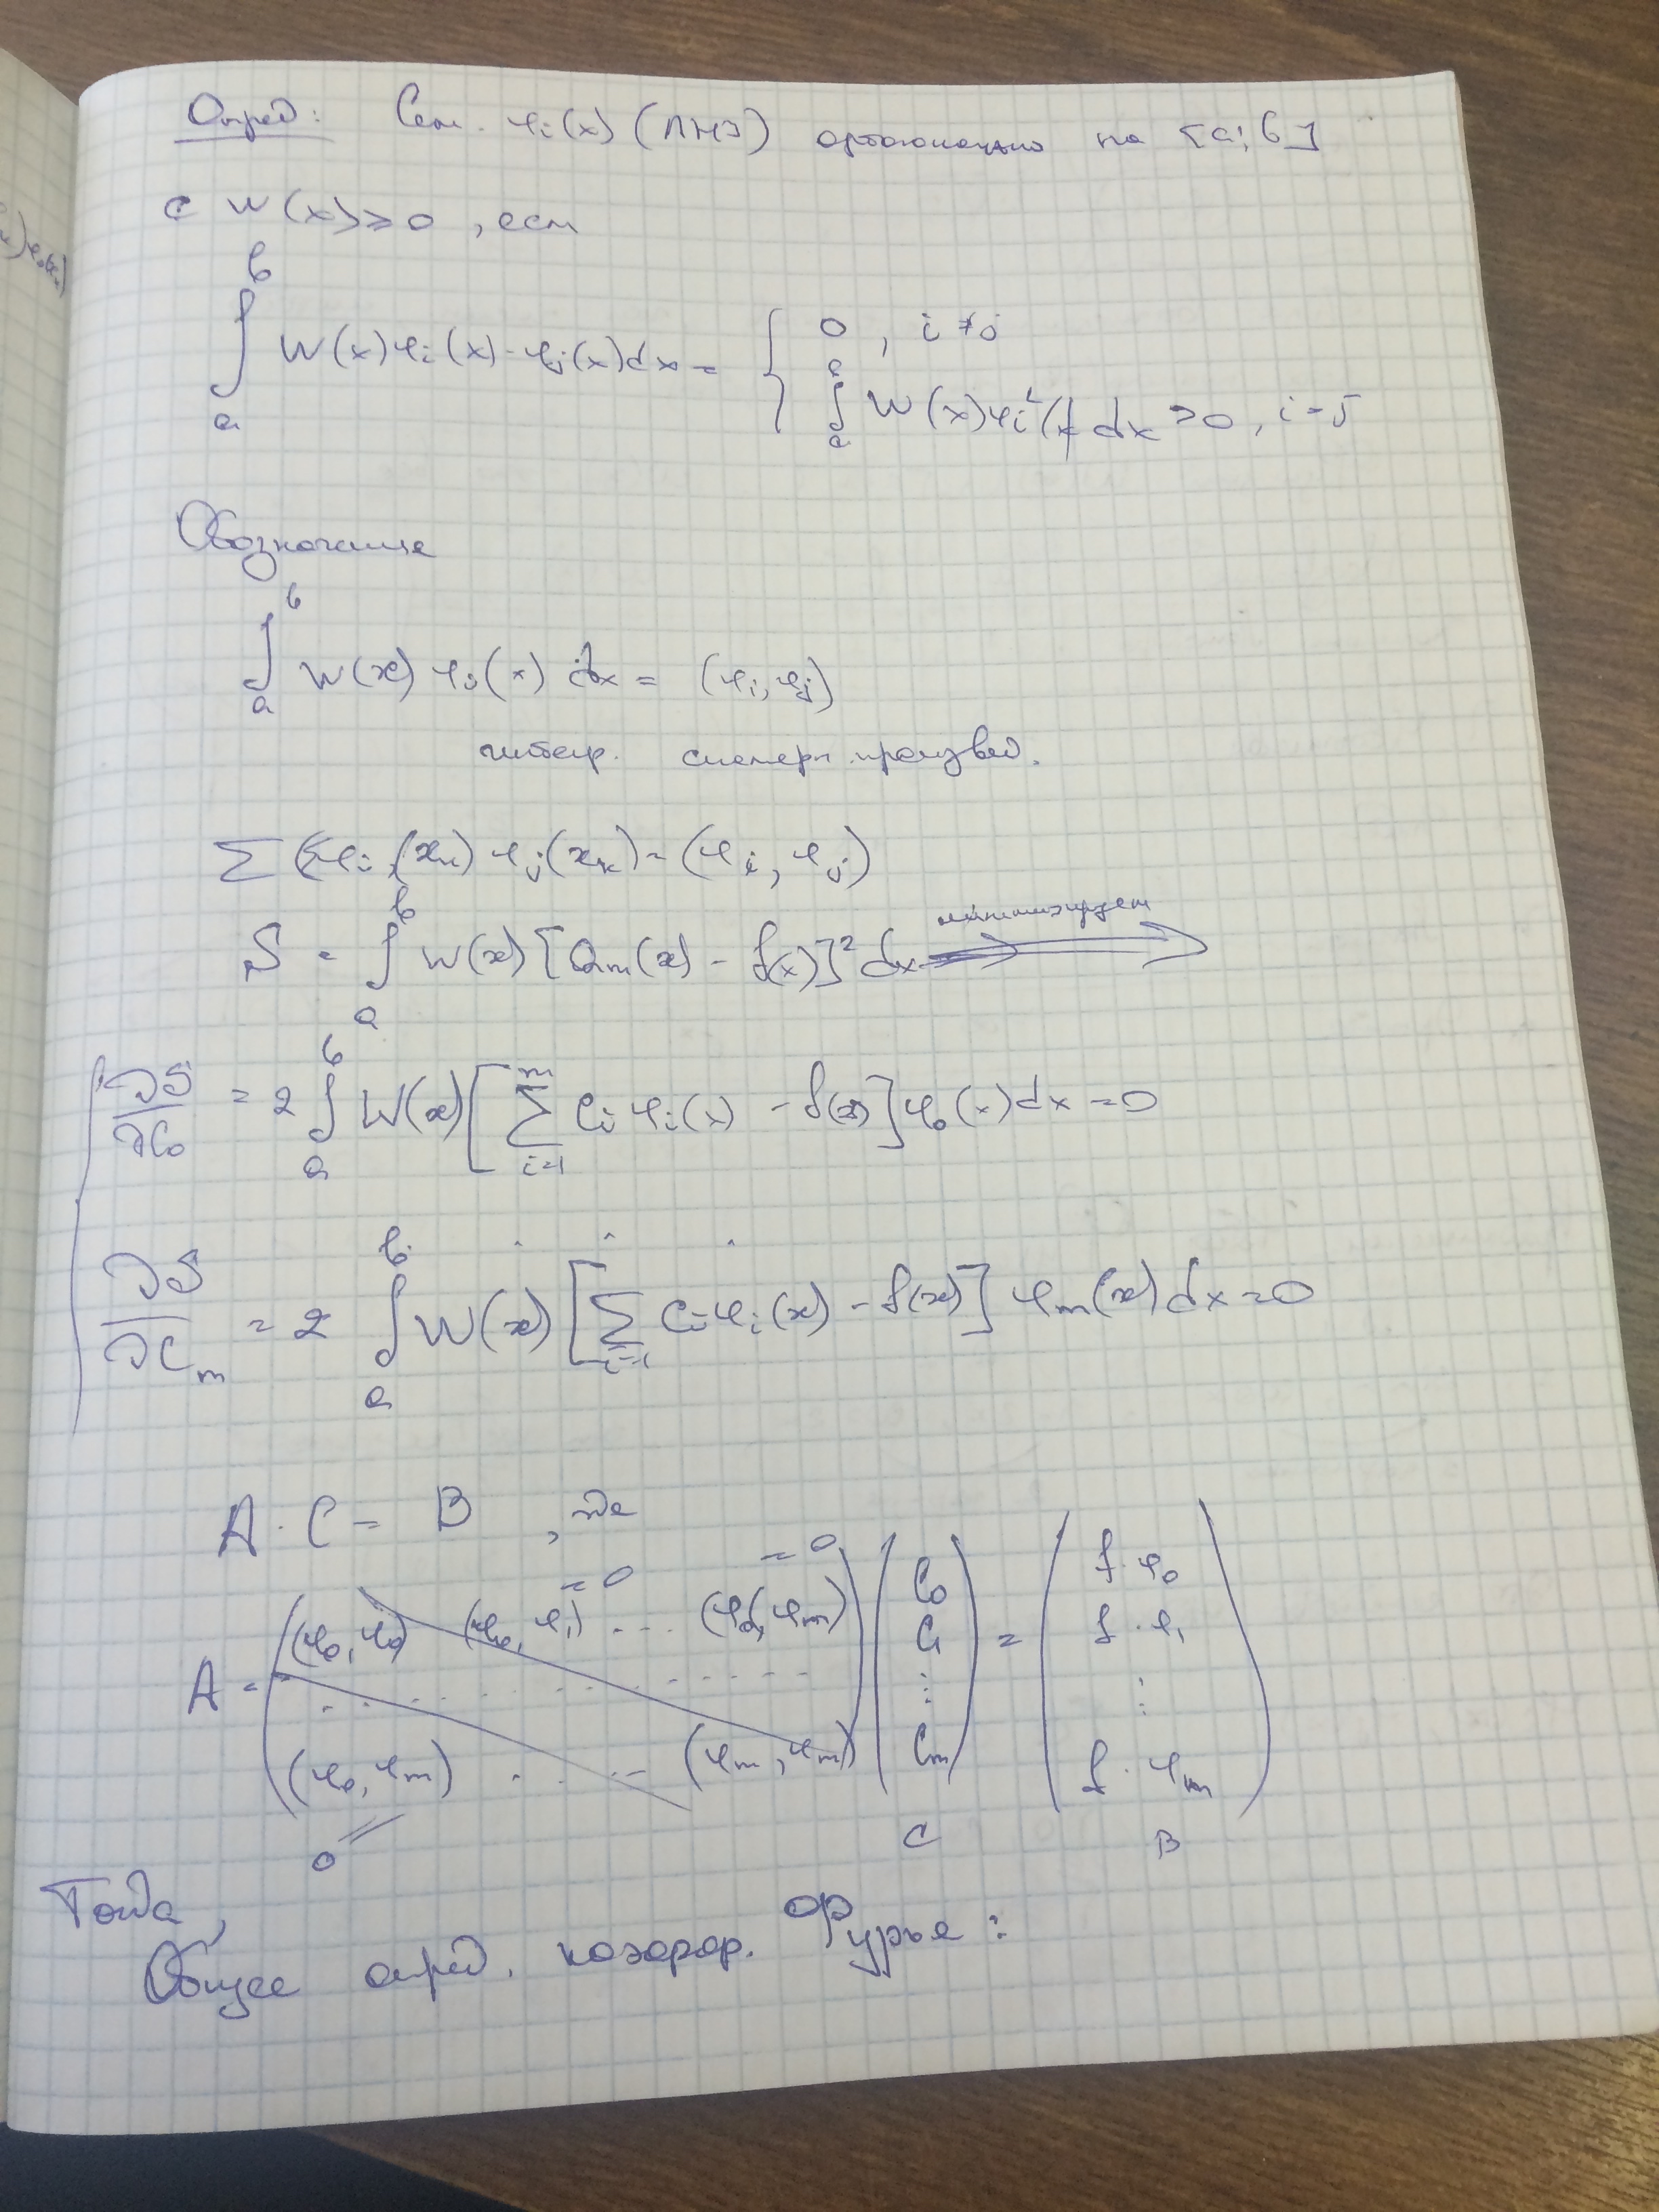 Опред: Сем. φi(x) (ЛНЗ) ортогонально на [a; b]
с W(x) ≥ 0, если
∫_a^b W(x)φi(x)·φj(x)dx = { 0, i ≠ j
∫_a^b W(x)φi²(x) dx > 0, i = j
Обозначение
∫_a^b W(x) φj(x) dx = (φi, φj)
интегр. скалярн. произвед.
Σ φi(xk) φj(xk) = (φi, φj)
S = ∫_a^b W(x) [Qm(x) − f(x)]² dx ⟹ минимизируем
∂S/∂C0 = 2 ∫_a^b W(x) [Σ_{i=1}^m Ci φi(x) − f(x)] φ0(x) dx = 0
. . .
∂S/∂Cm = 2 ∫_a^b W(x) [Σ_{i=1} Ci φi(x) − f(x)] φm(x) dx = 0
A · C = B , где
= 0 = 0
A = ( (φ0, φ0) (φ0, φ1) ... (φ0, φm) ) ( C0 ) = ( f · φ0 )
. . . . . . . . . . . C1 f · φ1
⋮ ⋮
(φ0, φm) . . . . . (φm, φm) Cm f · φm
0 C B
Тогда,
Общее опред. коэффр. Фурье :